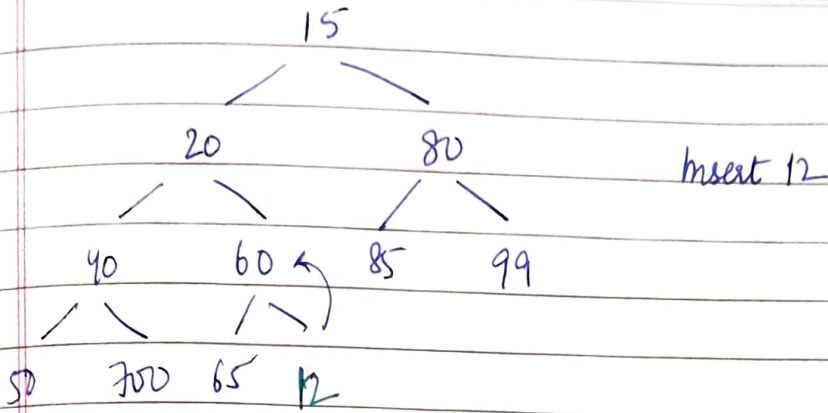 15
20 80 Insert 12
40 60 85 99
50 700 65 12